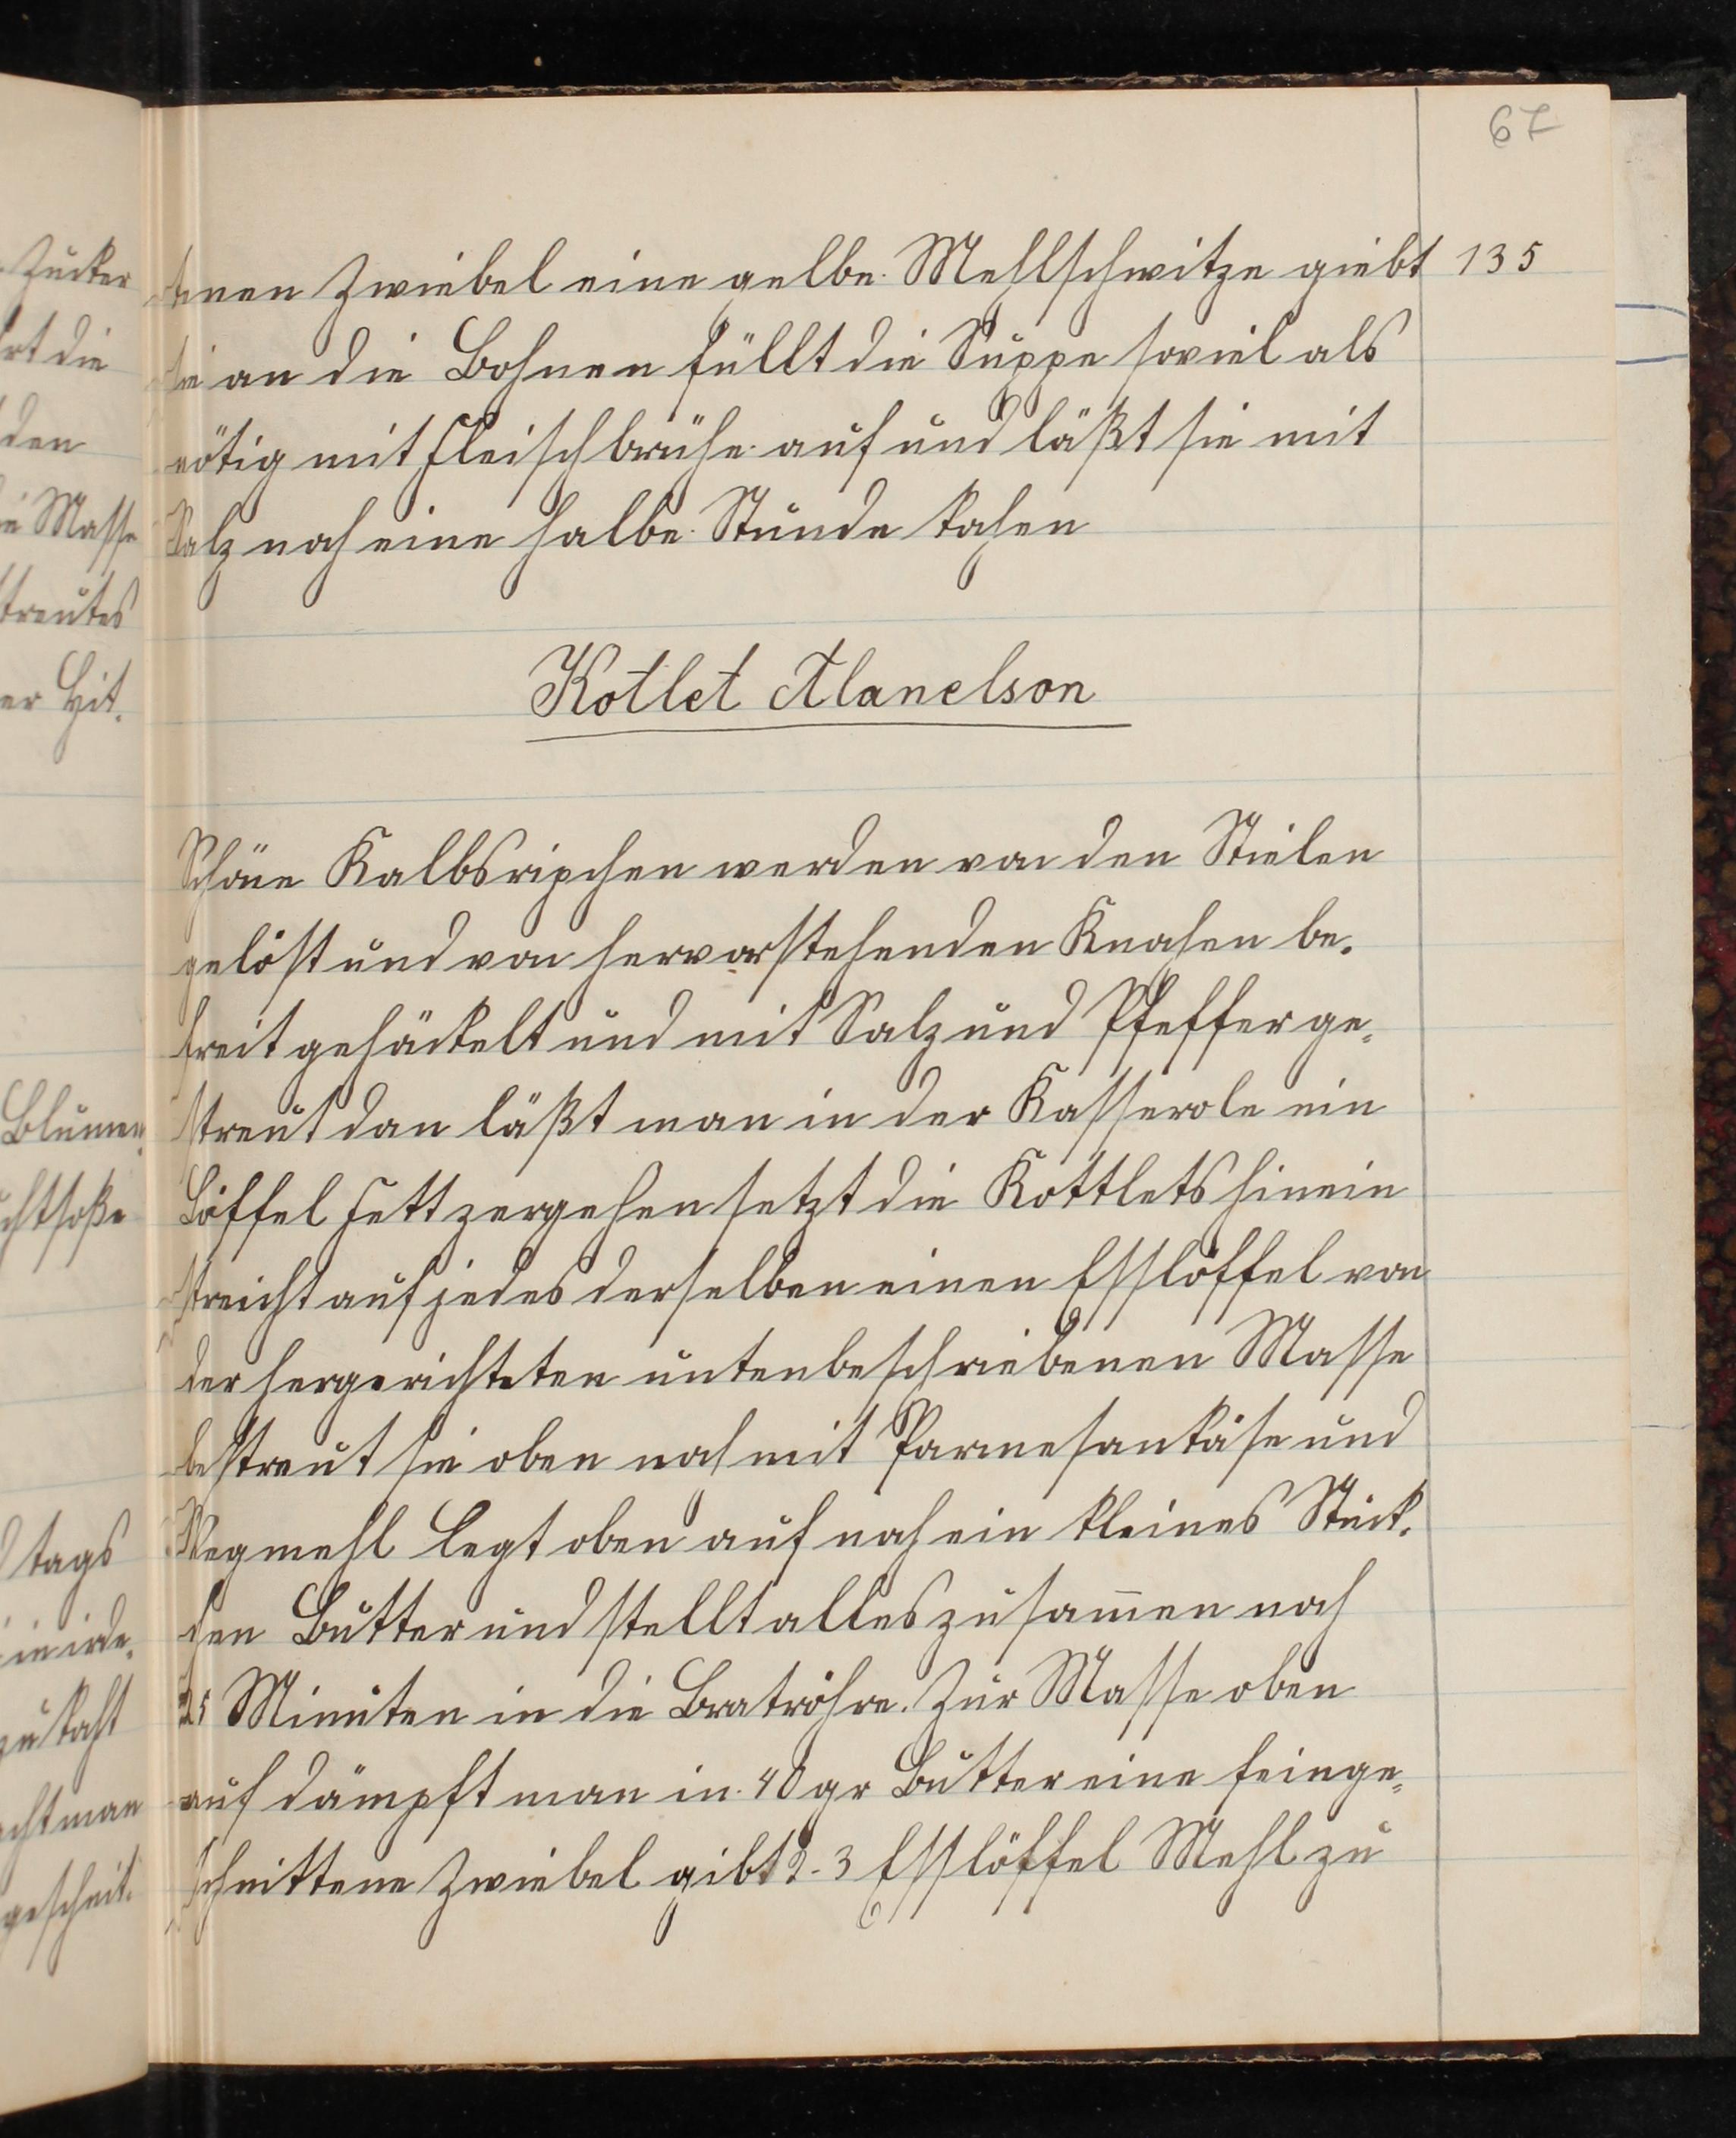 67
135
tenen Zwiebel eine gelbe Mehlschwitze giebt
sie an die Bohnen füllt die Suppe soviel als
nötig mit Fleischbrühe auf und läßt sie mit
Salz noch eine halbe Stunde kochen
Kotlet Alanelson
Schöne Kalbsripchen werden von den Stielen
gelöst und von hervorstehenden Knochen be-
freit gehäckelt und mit Salz und Pfeffer ge-
streut dan läßt man in der Kasserole ein
Löffel Fett zergehen setzt die Kottlets hinein
streicht auf jedes derselben einen Esslöffel von
der hergerichteten untenbeschriebenen Masse
bestreut sie oben noch mit Parmesankäse und
Wegmehl legt oben auf noch ein kleines Stück-
chen Butter und stellt alles zusam̄en noch
25 Minuten in die Bratröhre. Zur Masse oben
auf dämpft man in 40 gr Butter eine feinge-
schnittene Zwiebel gibt 2-3 Esslöffel Mehl zu
Zucker
rt die
den
ie Masse
streutes
er Hit-
Blumen-
chtsoße
d tags
in irde-
zu kocht
acht man
geschnit-